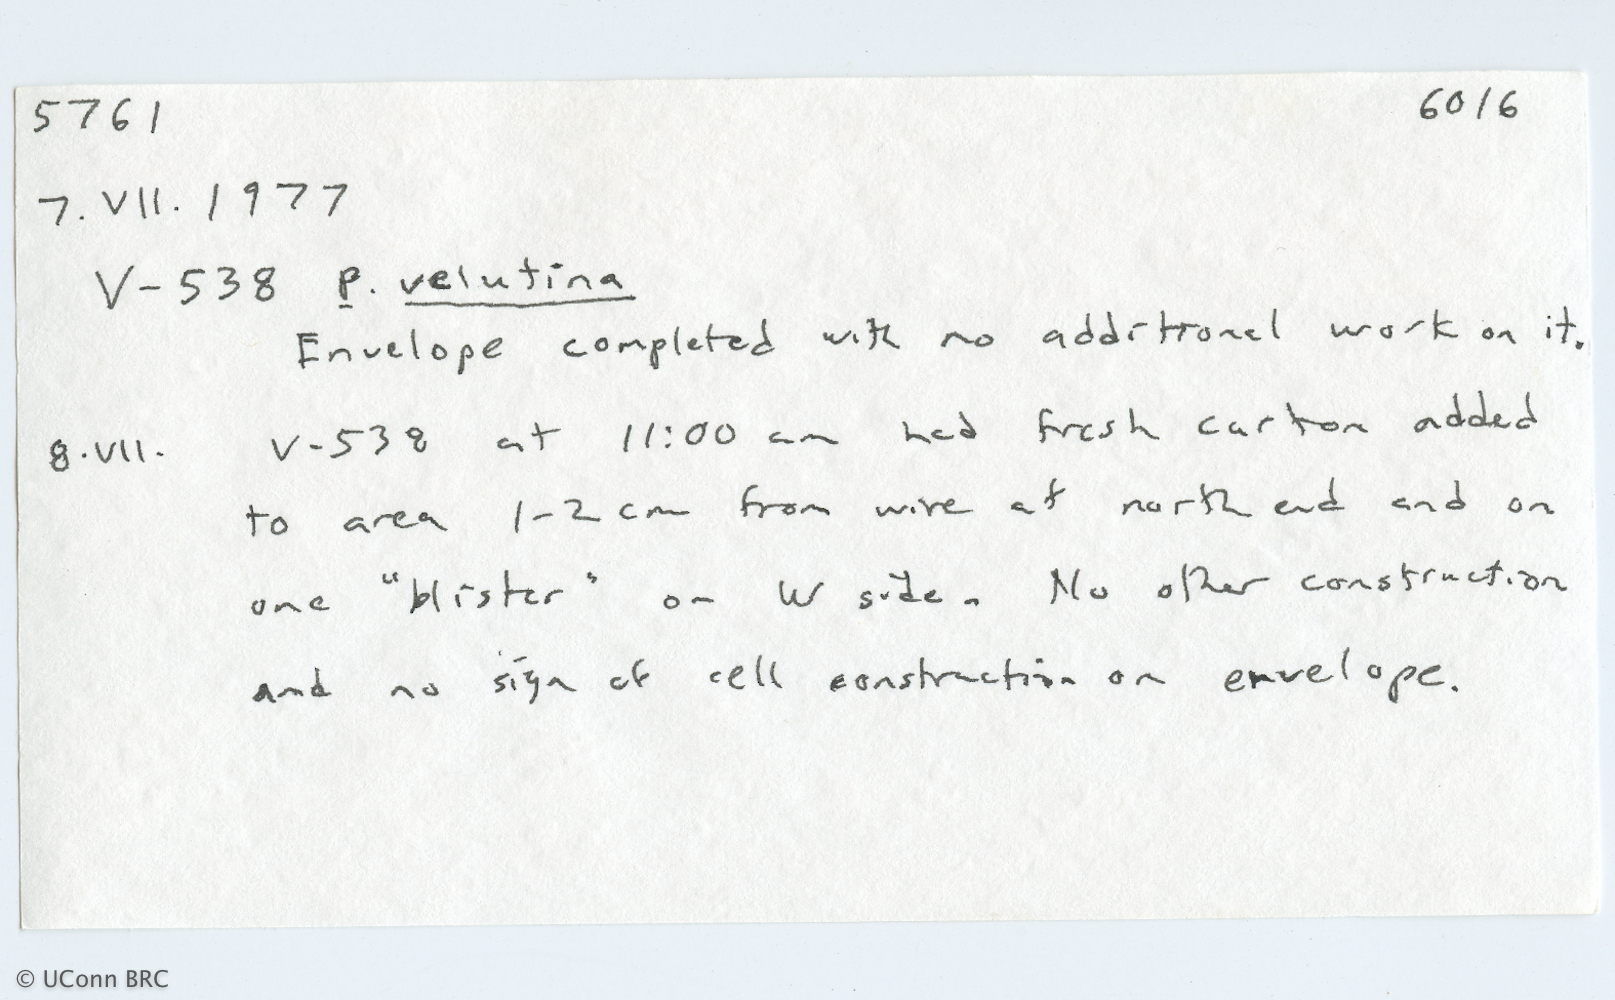 5761 6016
7.VII.1977
V-538 P. velutina
Envelope completed with no additional work on it.
8.VII. V-538 at 11:00 am had fresh carton added
to area 1-2 cm from wire at north end and on
one "blister" on W side. No other construction
and no sign of cell construction on envelope.
© UConn BRC